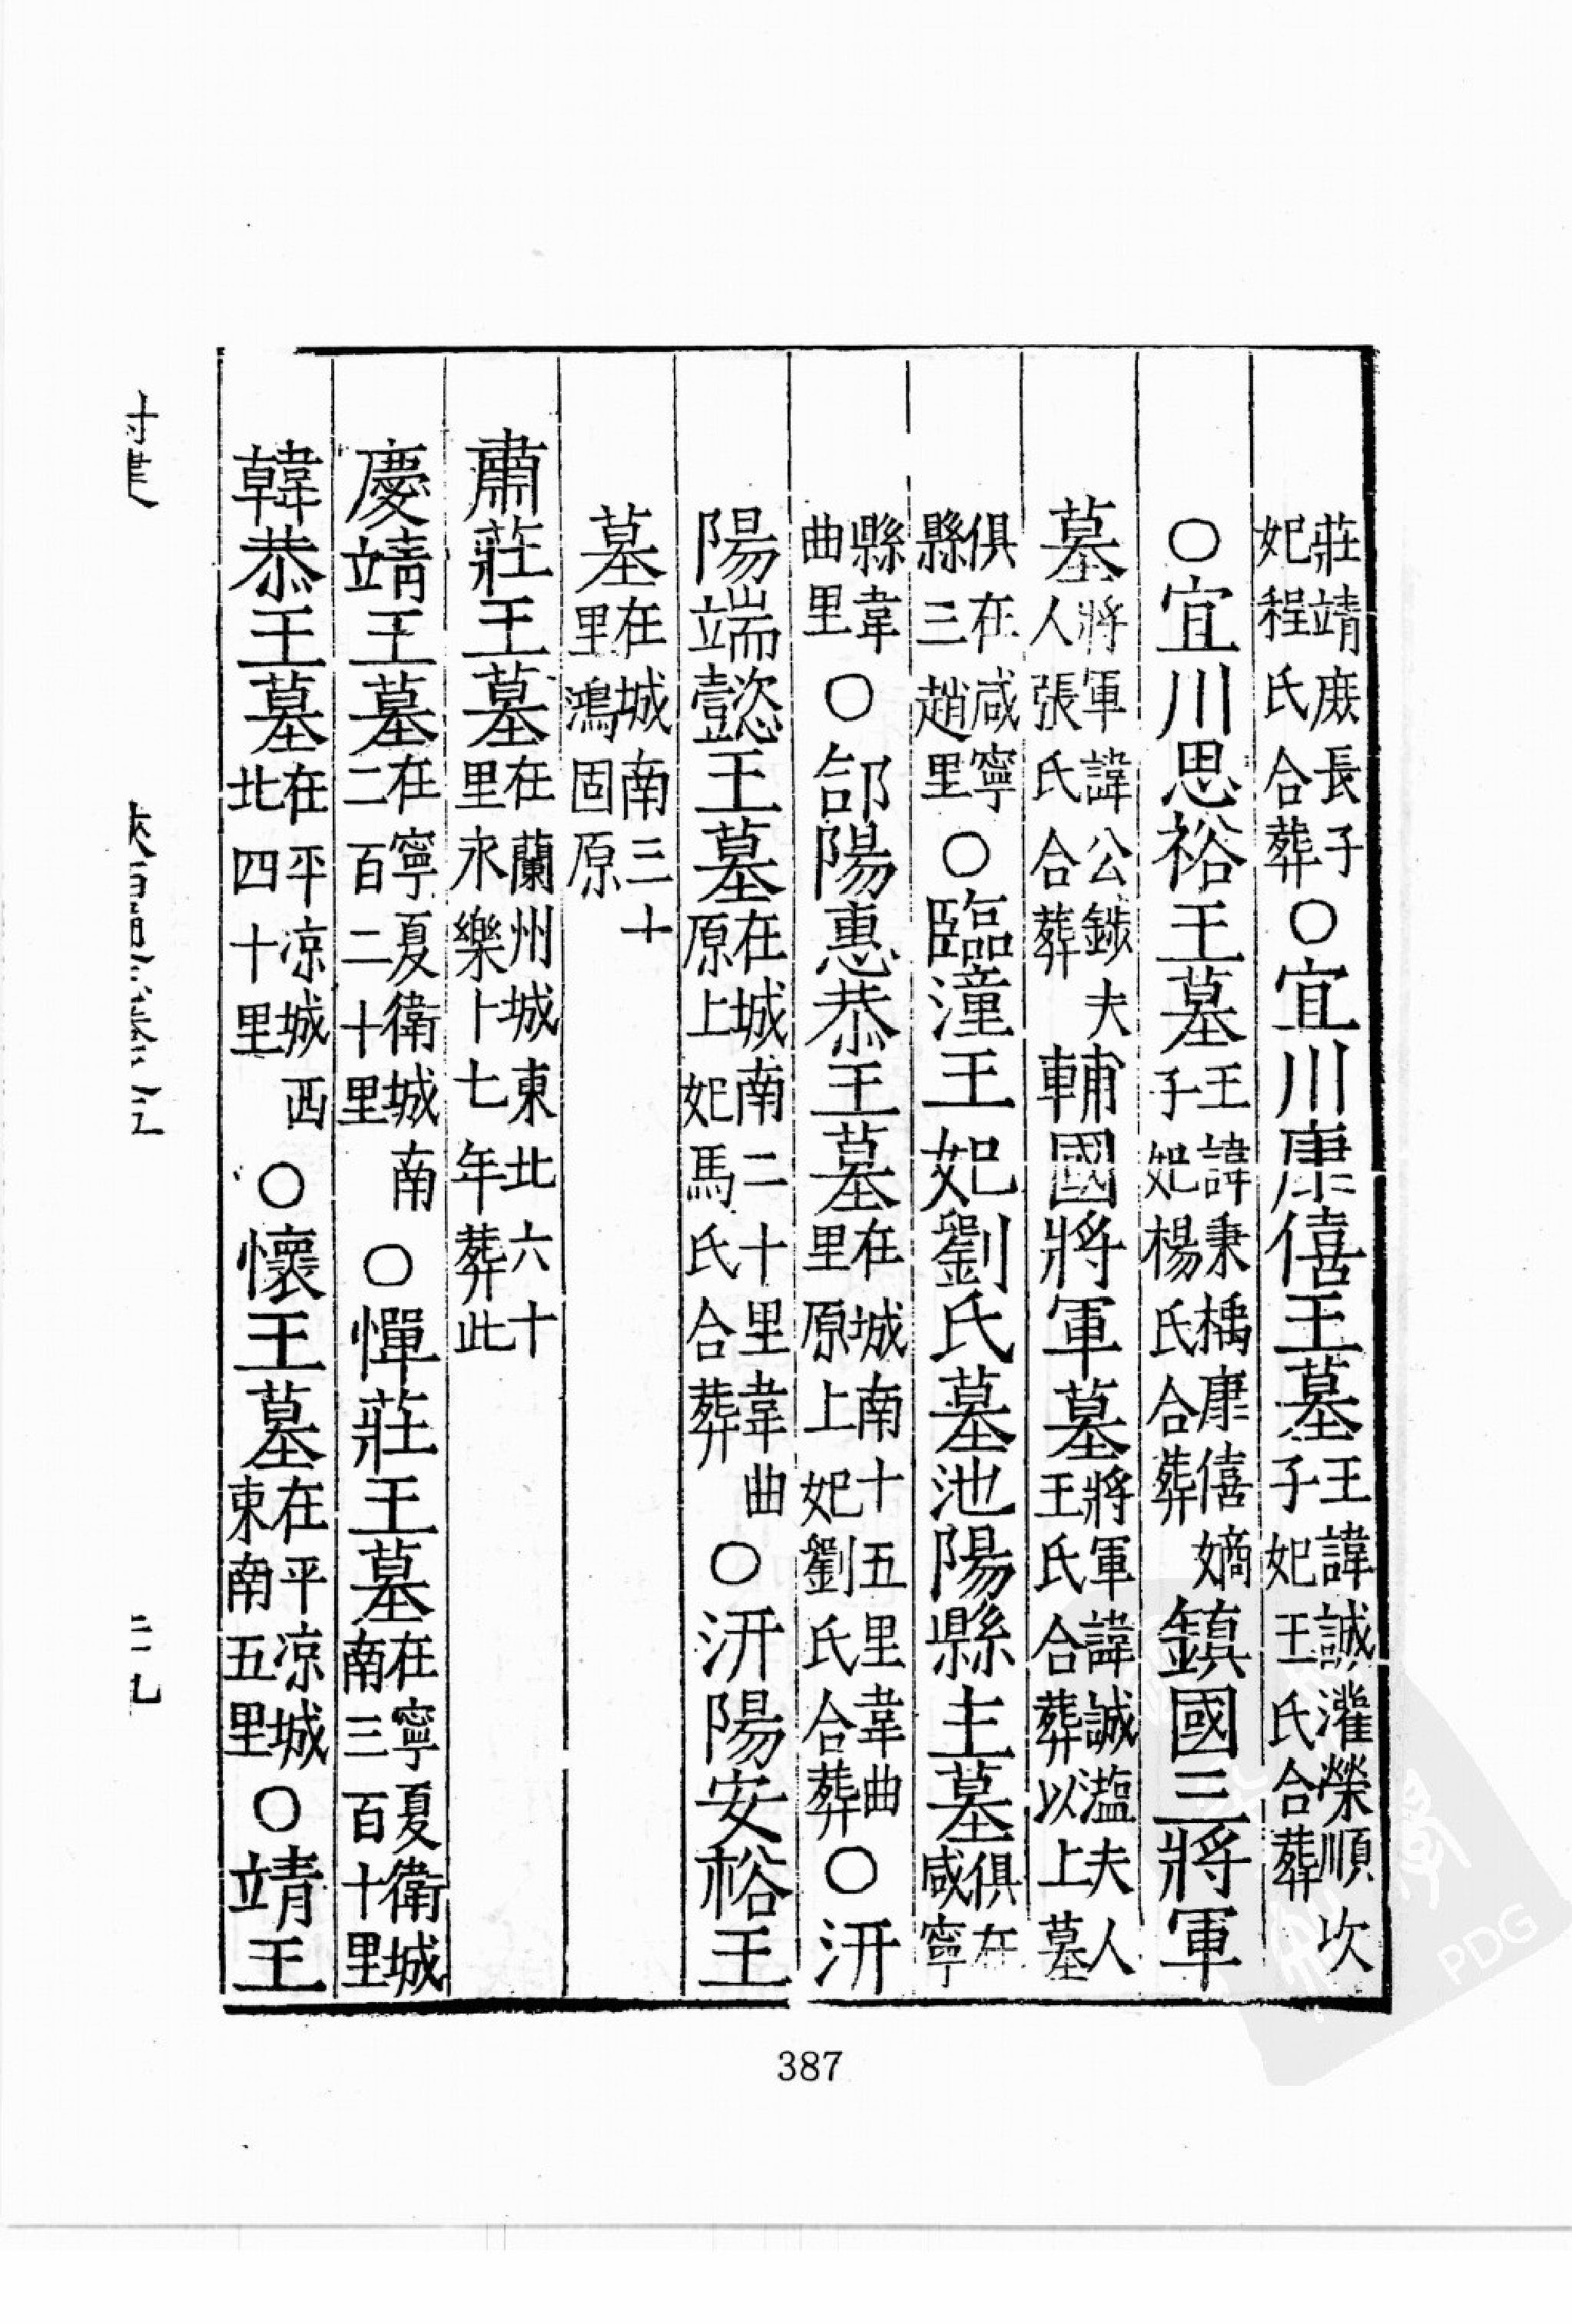 莊靖庶長子妃程氏合葬○宜川康僖王墓王諱誠灌榮順次子妃王氏合葬
○宜川思裕王墓王諱秉橘康僖嫡子妃楊氏合葬鎮國三將軍
墓將軍諱公鉜夫人張氏合葬輔國將軍墓將軍諱誠溋夫人王氏合葬以上墓
俱在咸寧縣三趙里○臨潼王妃劉氏墓池陽縣主墓俱在咸寧
縣韋曲里○郃陽惠恭王墓在城南十五里韋曲里原上妃劉氏合葬○汧
陽端懿王墓在城南二十里韋曲原上妃馬氏合葬○汧陽安裕王
墓在城南三十里鴻固原
肅莊王墓在蘭州城東北六十里永樂卜七年葬此
慶靖王墓在寧夏衛城南二百二十里○憚莊王墓在寧夏衛城南三百十里
韓恭王墓在平凉城西北四十里○懷王墓在平凉城東南五里○靖王
387
PDG